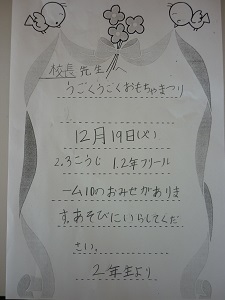 校長先生へ
うごくうごくおもちゃまつり
12月19日(火)
2.3こうじ 1.2年フリール
ーム10のおみせがありま
す。あそびにいらしてくだ
さい。
2年生より